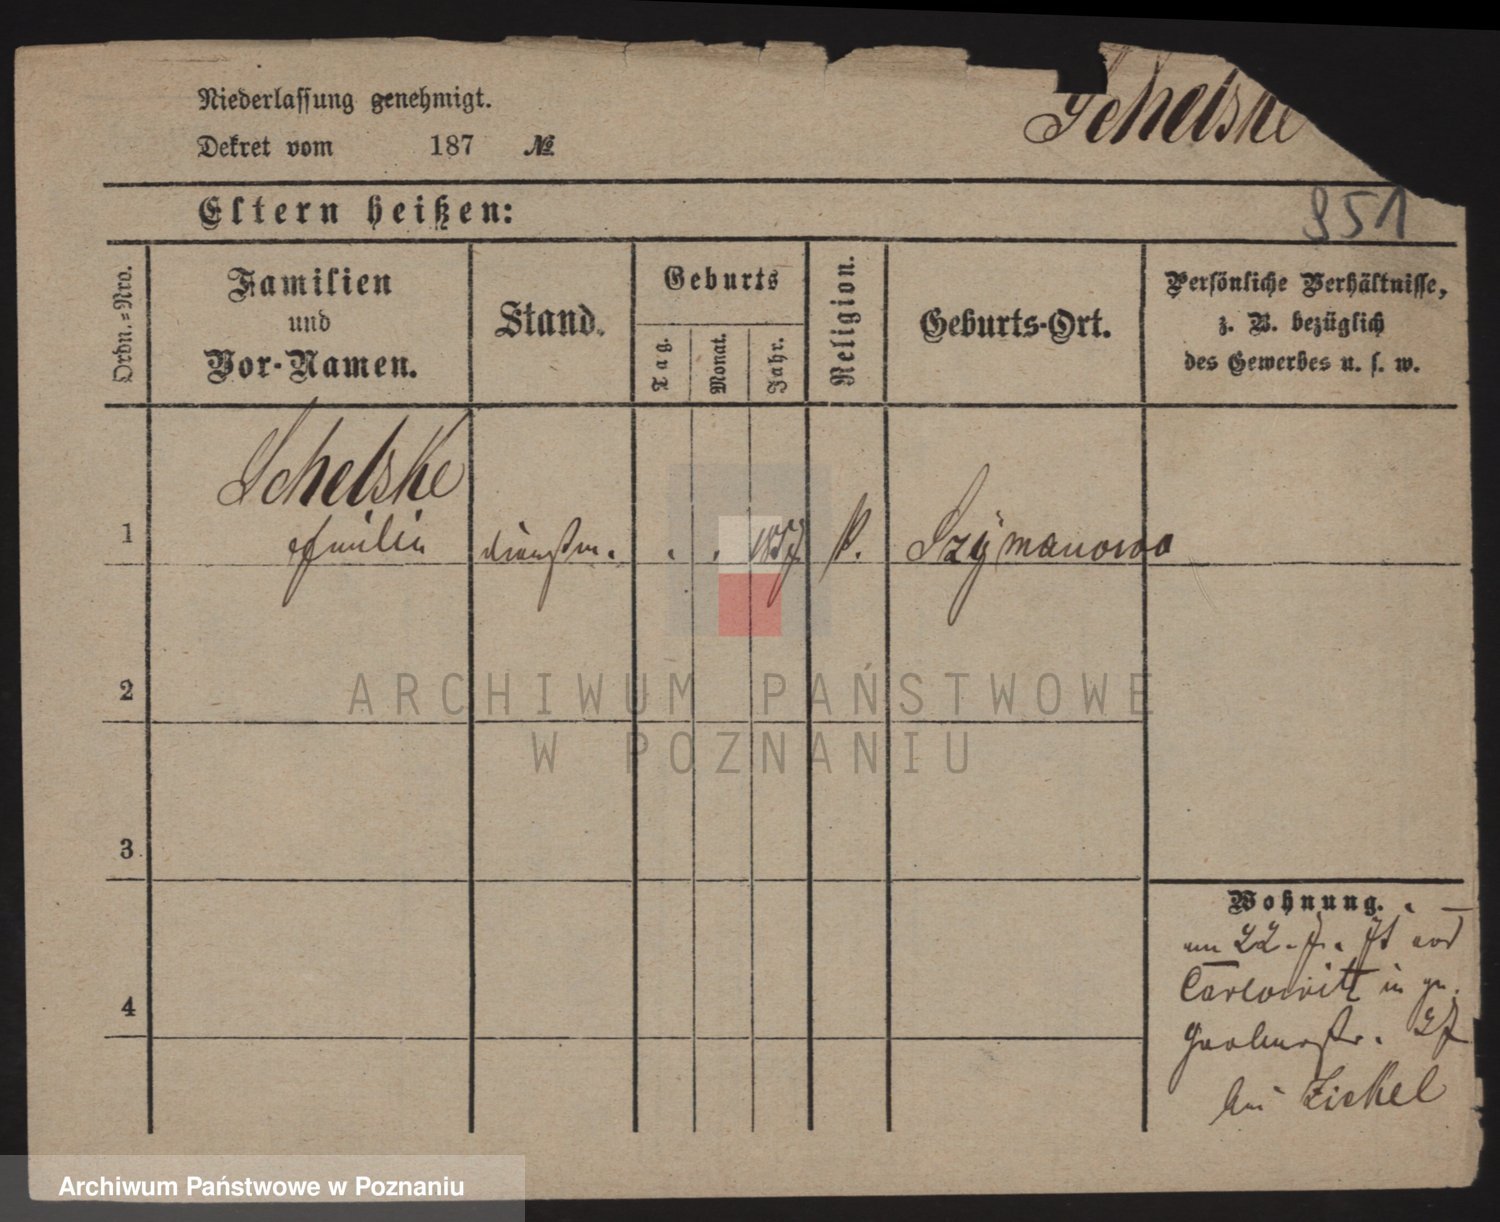 Niederlassung genehmigt.
Schelske
Dekret vom 187 №
Eltern heißen:
951
Ordn.=Nro.
Familien
und
Vor-Namen.
Stand.
Geburts
Tag.
Monat.
Jahr.
Religion.
Geburts-Ort.
Persönliche Verhältnisse,
z. B. bezüglich
des Gewerbes u. s. w.
1
Schelske
Emilie
1857
k.
Szymanowo
2
ARCHIWUM PAŃSTWOWE
W POZNANIU
3
Wohnung.
22. 7.
Carlowitz in
27
bei Zickel
4
Archiwum Państwowe w Poznaniu